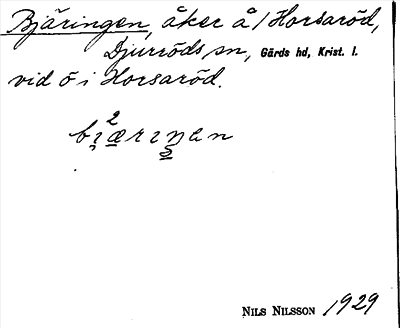 Bjäringen, åker å / Horsaröd,
Djurröds sn, Gärds hd, Krist. l.
vid ö i Horsaröd.
NILS NILSSON 1929